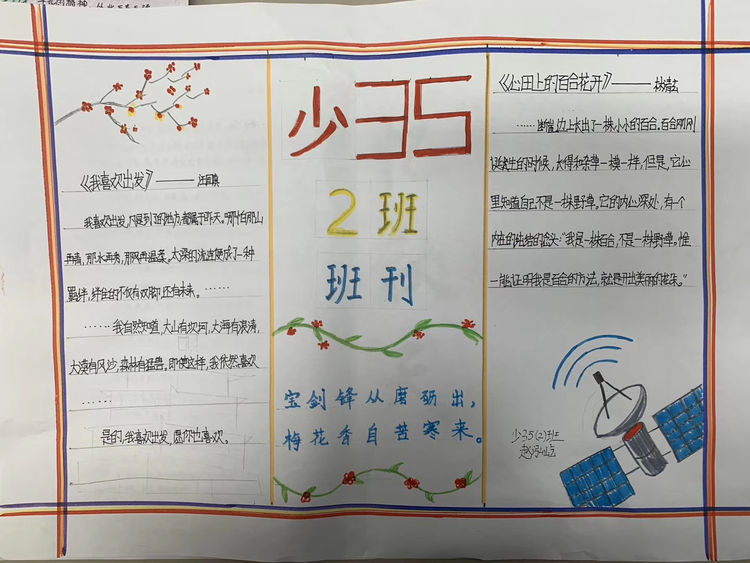 《我喜欢出发》—— 汪国真
我喜欢出发,凡是到了的地方,都属于昨天。哪怕那山
再青,那水再秀,那风再温柔。太深的流连便成了一种
羁绊,绊住的不仅有双脚,还有未来。……
……我自然知道,大山有坎坷,大海有浪涛,
大漠有风沙,森林有猛兽。即便这样,我依然喜欢
……
是的,我喜欢出发,愿你也喜欢。
少35
2班
班刊
宝剑锋从磨砺出,
梅花香自苦寒来。
《心田上的百合花开》——林清玄
……断崖边上长出了一株小小的百合。百合刚刚
诞生的时候,长得和杂草一模一样,但是,它心
里知道自己不是一株野草。它的内心深处,有一个
内在的纯洁的念头:“我是一株百合,不是一株野草。惟
一能证明我是百合的方法,就是开出美丽的花朵。”
少35(2)班